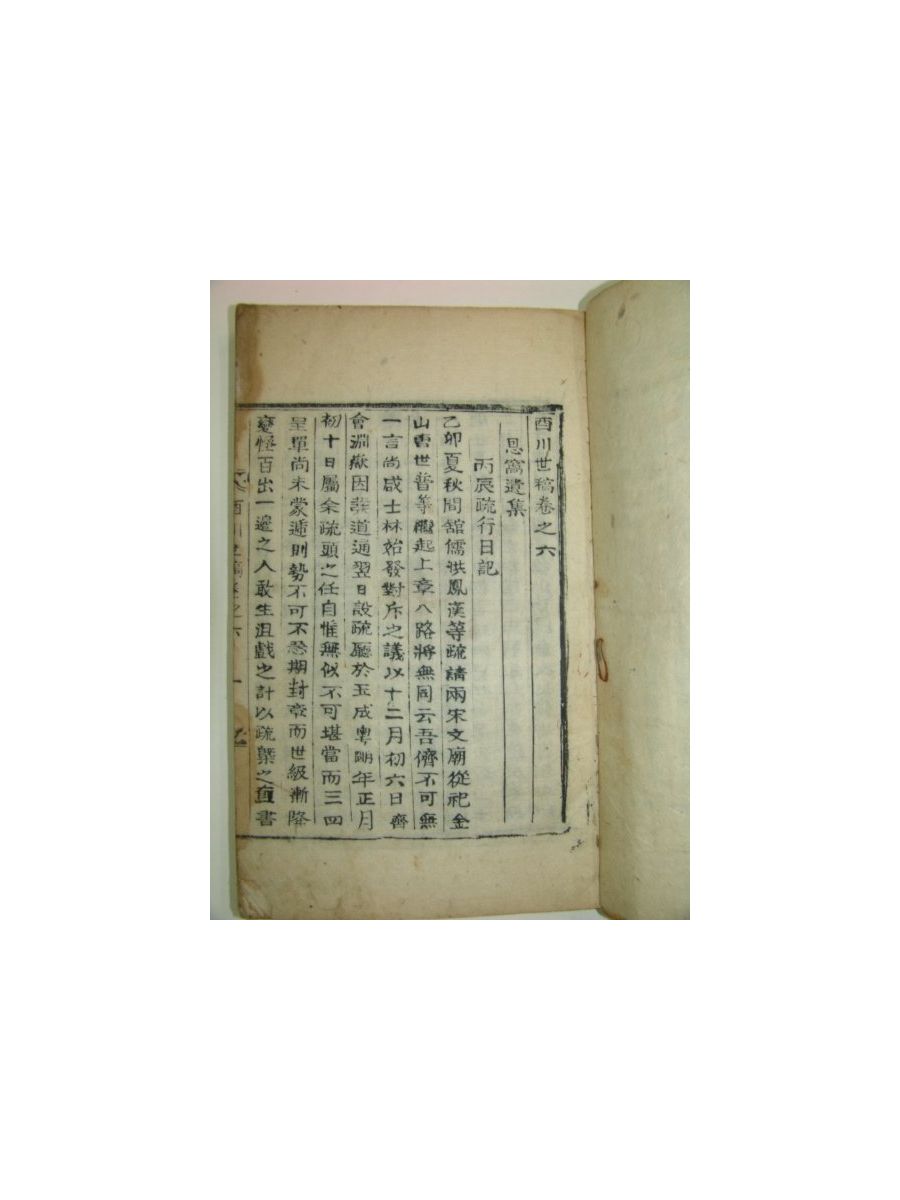 酉川世稿卷之六
思窩遺集
丙辰疏行日記
乙卯夏秋間舘儒洪鳳漢等疏請兩宋文廟從祀金
山曺世普等繼起上章八路將無同云吾儕不可無
一言尚咸士林始發對斥之議以十二月初六日齊
會淵嶽因設道通翌日設疏廳於玉成粤明年正月
初十日屬余疏頭之任自惟無似不可堪當而三四
呈單尚未蒙遞則勢不可不愆期封章而世級漸降
變怪百出一邊之人敢生沮戱之計以疏槩之直書
酉川世稿卷之六 一